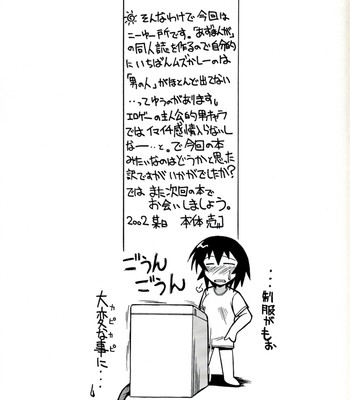 そんなわけで今回は
こーゆー所です。「あずまんが」
の同人誌を作るので自分的
にいちばんムズかしーのは
「男の人」がほとんど出てない
…ってゆうのがあります。
エロゲーの主人公的男キャラ
ではイマイチ感情入らないし
なー…と。で今回の本
みたいなのはどうかと思った
訳ですがいかがでしたか?
では また次回の本で
お会いしましょう。
2002 某日 本体売
ごうん
ごうん
…制服がもお
大変な事に…
カピ
カピ